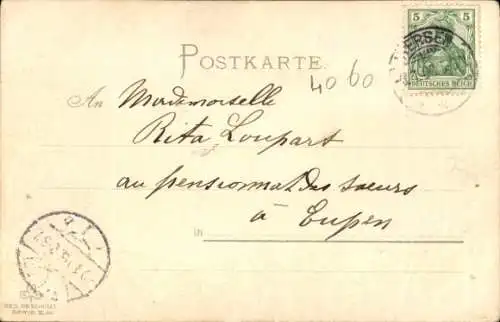 5 5
DEUTSCHES REICH
POSTKARTE.
40 60
An Mademoiselle
Rita Loupart
au pensionnat des soeurs
in à Eupen